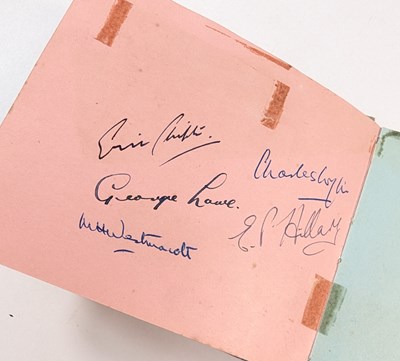 Eric Shipton.
George Lowe.
MHWestmacott
Charles Wylie
E P Hillary